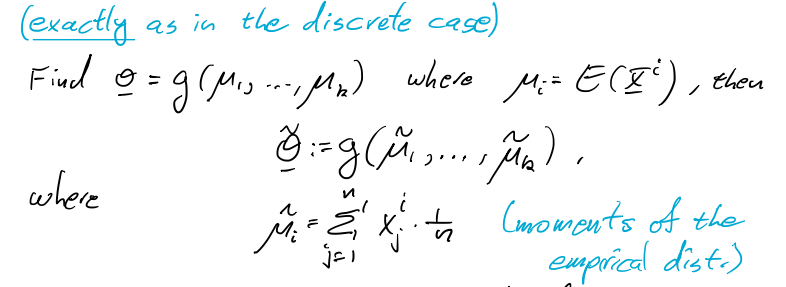 (exactly as in the discrete case)
Find θ = g(μ₁, ..., μₖ) where μᵢ = E(Xⁱ), then
θ̃ := g(μ̃₁, ..., μ̃ₖ),
where
μ̃ᵢ = Σⁿⱼ₌₁ xⱼⁱ · 1/n (moments of the
empirical dist.)